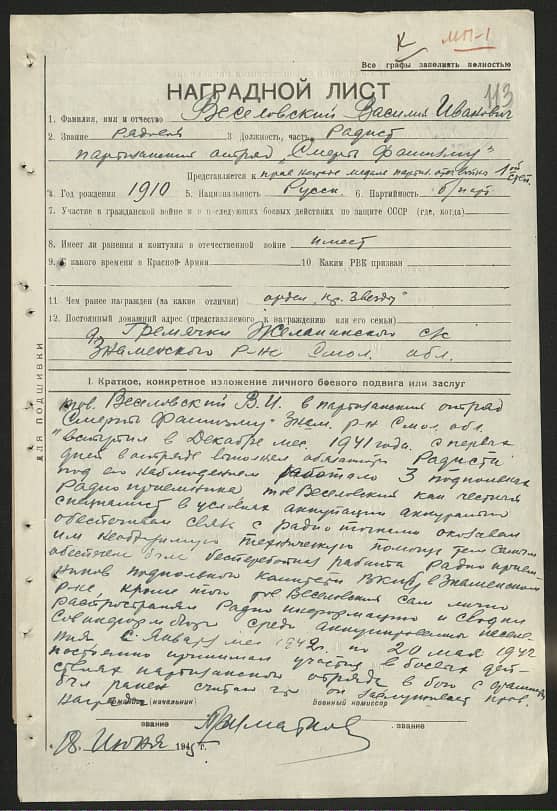 К МП-1
Все графы заполнять полностью
НАГРАДНОЙ ЛИСТ
113
1. Фамилия, имя и отчество Веселовский Василий Иванович
2. Звание рядовой 3 Должность, часть Радист
партизанский отряд „Смерть Фашизму"
Представляется к прав. медали партиз. отеч. войны 1ой степ.
4. Год рождения 1910 5. Национальность Русск 6. Партийность б/парт
7. Участие в гражданской войне и в последующих боевых действиях по защите СССР (где, когда)
8. Имеет ли ранения и контузии в отечественной войне имеет
9. С какого времени в Красной Армии 10. Каким РВК призван
11. Чем ранее награжден (за какие отличия) орден „Кр. Звезды"
12. Постоянный домашний адрес (представляемого к награждению или его семьи)
д. Гремячки Желаньинского с/с
Знаменского р-на Смол. обл.
ДЛЯ ПОДШИВКИ
I. Краткое, конкретное изложение личного боевого подвига или заслуг
тов. Веселовский В.И. в партизанский отряд
„Смерть Фашизму" Знам. р-на Смол. обл.
вступил в Декабре мес. 1941 года. с первых
дней в отряде выполнял обязаност Радиста
под его наблюдением работало 3 подпольных
Радиоприемника тов Веселовский как честный
специалист в условиях аккупации аккуратно
обеспечивал связь с радио точками оказывал
им необходимую техническую помощь тем самым
обеспечен был бесперебойная работа Радио прием-
ников подпольного комитета ВКП(б) в Знаменском
р-не, кроме того тов Веселовский сам лично
распространял Радио информацию и сводки
Совинформбюро среди аккупированого населе-
ния с Января мес 1942 г. по 20 мая 1942
постоянно принимал участия в боевых дей-
ствиях партизанского отряда в бою с
был ранен считаю что он заслуживает прав.
награды
Командир (начальник) Военный комиссар
звание звание
18. Июня 1945 г.